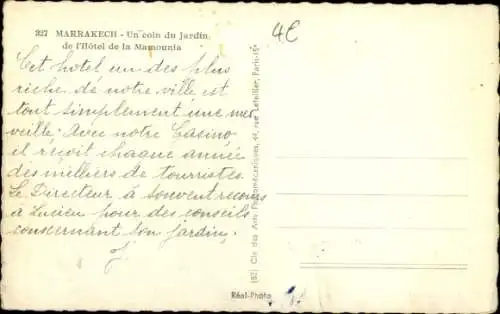 327 MARRAKECH - Un coin du Jardin
de l'Hôtel de la Mamounia
4€
Cet hotel un des plus
riche de notre ville est
tout simplement une mer
veille. Avec notre Casino,
il reçoit chaque année
des melliers de tourristes.
Le Directeur à souvent recours
à Lucien pour des conseils
consernant son jardin.
(S2) Cie des Arts Photomécaniques, 44, rue Letellier, Paris-15e
Réal-Photo